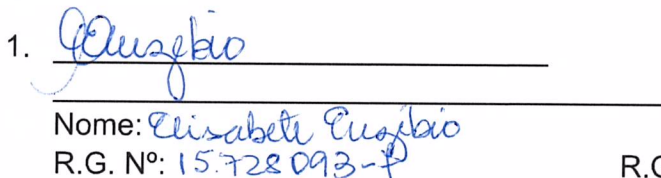 1. Eusébio
Nome: Elisabete Eusébio
R.G. Nº: 15.728093-P R.G